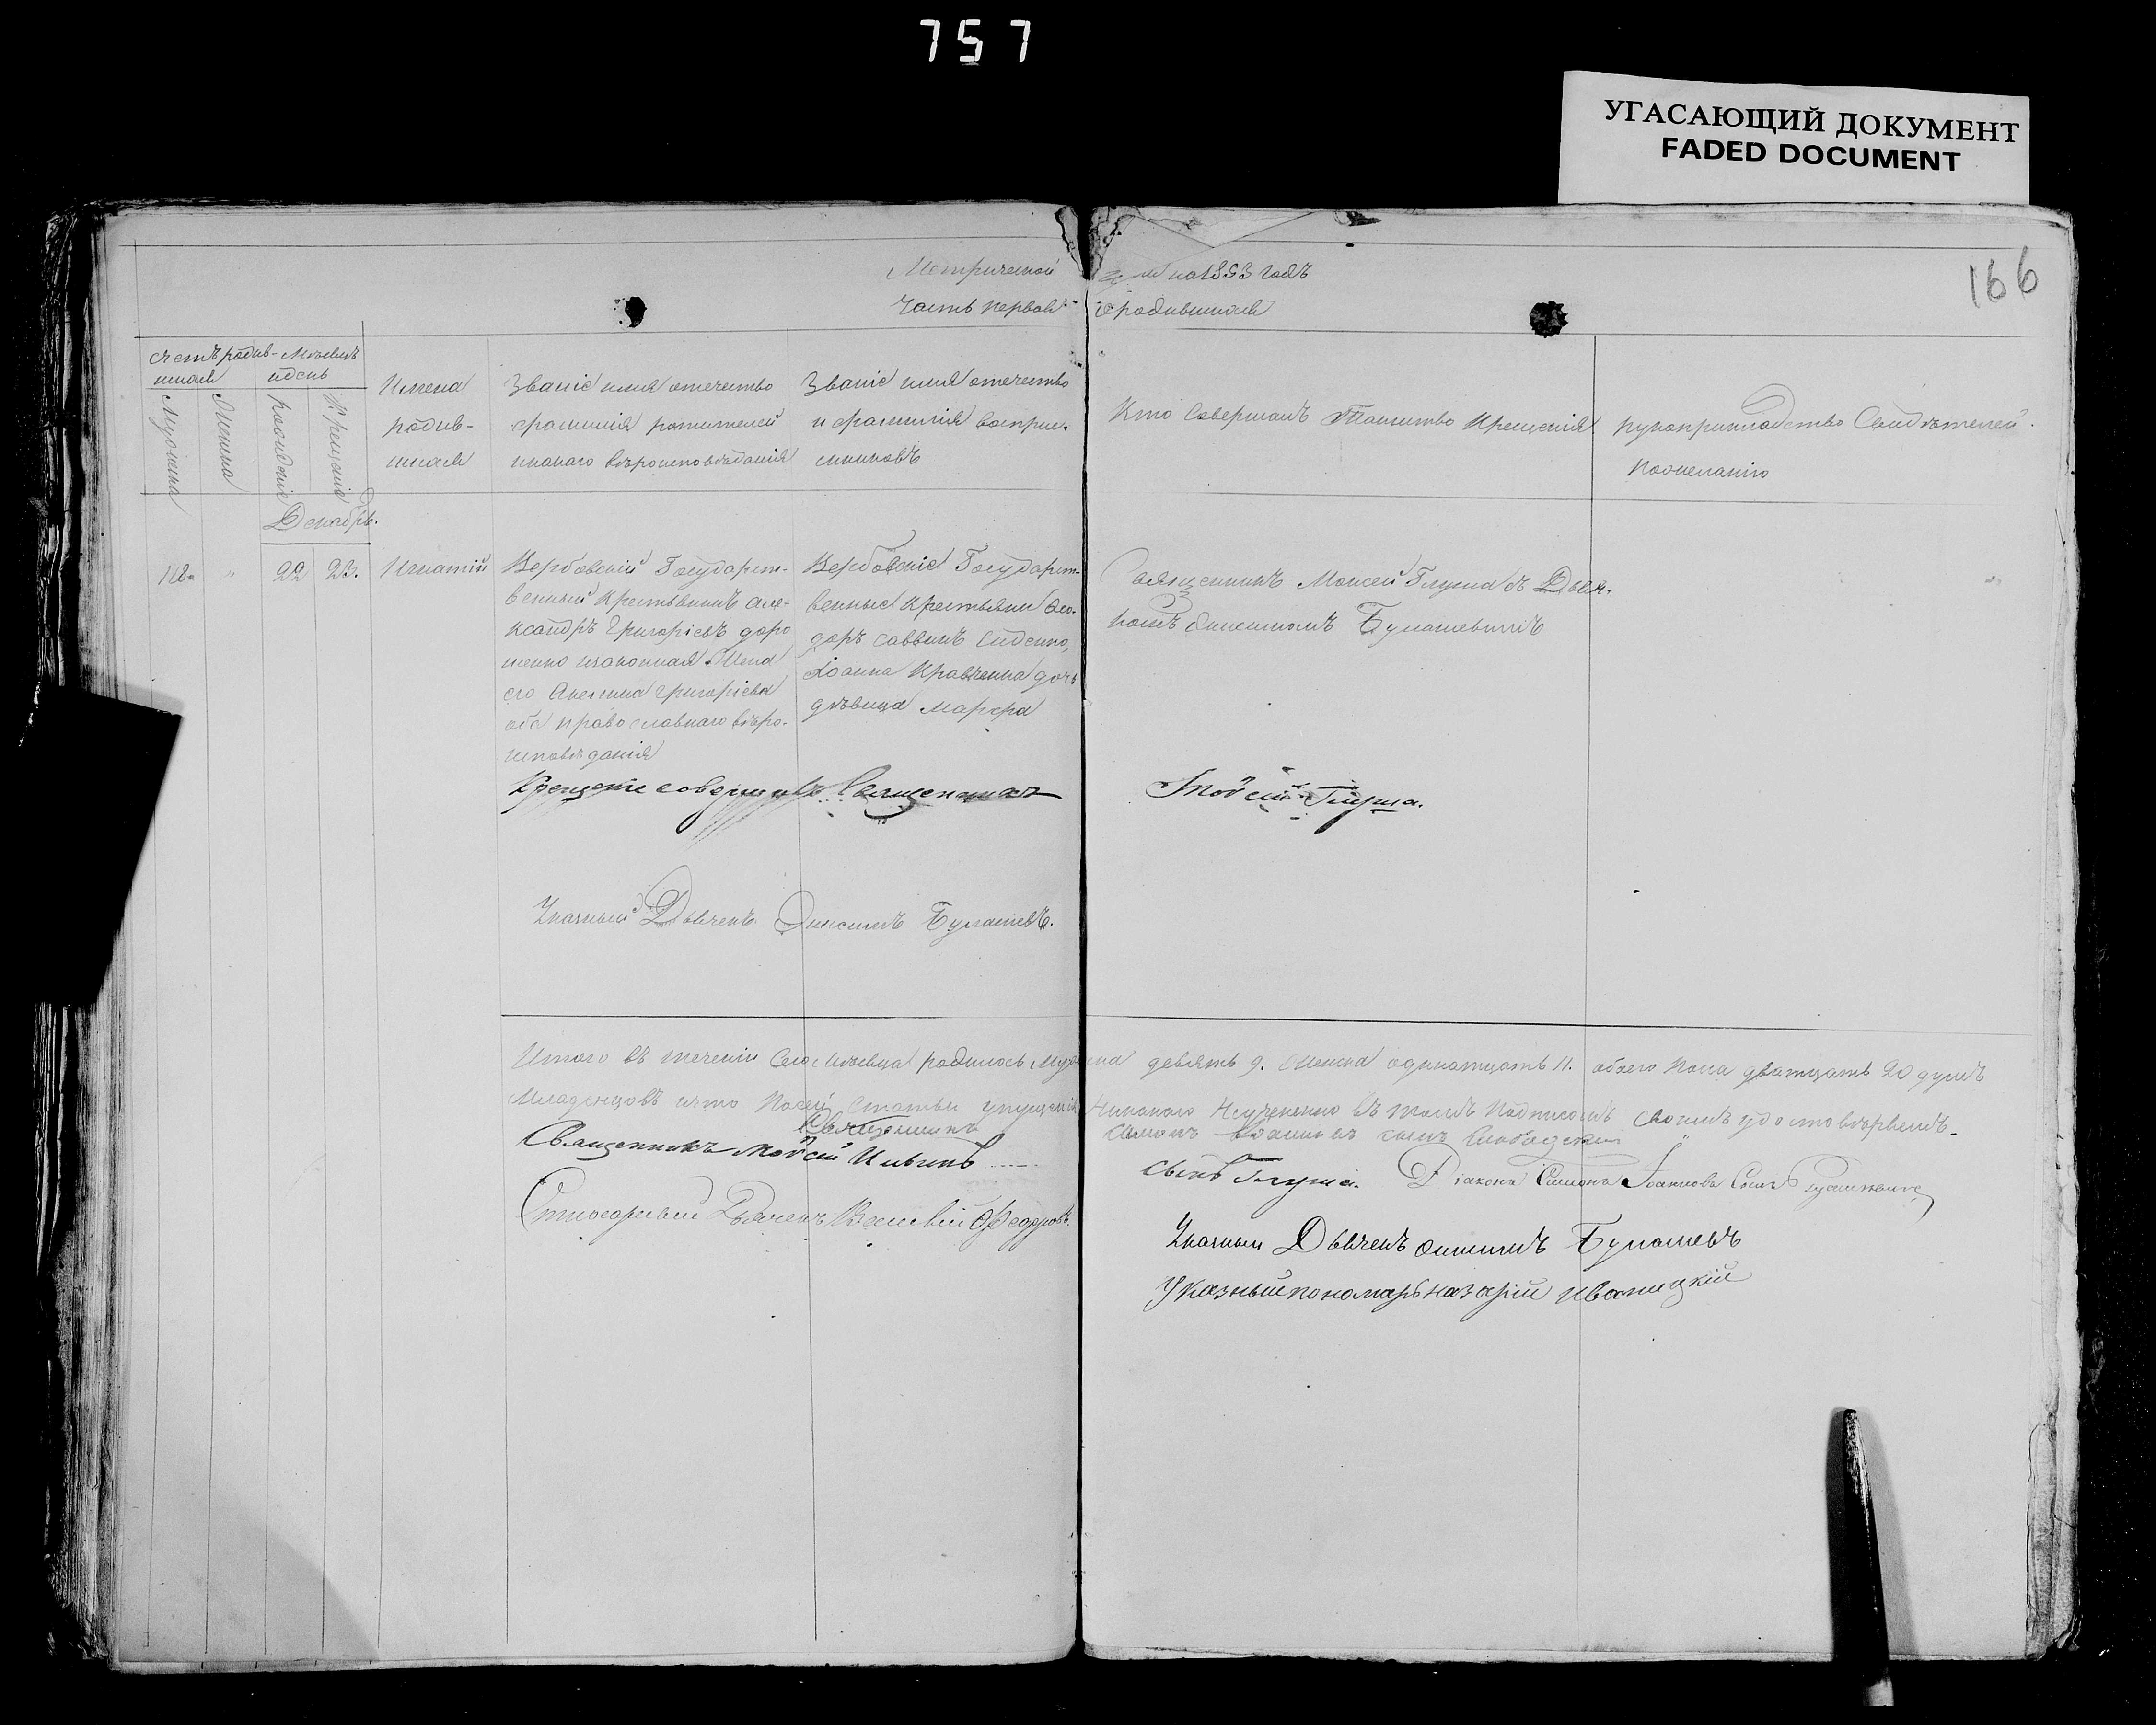 757
УГАСАЮЩИЙ ДОКУМЕНТ
FADED DOCUMENT
166
Метрической на 1853 годъ
Часть первая о родившихся
Счетъ родив- Мѣсяцъ
шихся идень
Мужеска
Женска
Рождения
Крещенія
Имена
родив-
шихся
Званіе имя отечество
фамилія родителей
икакого вѣроисповѣданія
Званіе имя отечество
и фамилія восприе-
мниковъ
Кто Совершалъ Таинство Крещенія
рукоприкладство Свидѣтелей
пожеланію
Декабрь.
118. " 22 23. Игнатій
Вербовскій Государст-
венный крестьянинъ Але-
ксандръ Григоріевъ доро
шенко изаконная Жена
его Ангелина Григоріева
оба православного вѣро-
исповѣданія
Вербовскіе Государст-
венные крестьяни Ѳео-
доръ Саввинъ Сиденко,
Іоанна Кравченка дочь
дѣвица Марфа
Священникъ Моисей Глума съ Дьяч-
комъ Онисимомъ Булашевичъ
Крещение совершалъ Священникъ Мойсей Глума.
Указный Дьячекъ Онисимъ Булашевъ.
Итого въ теченіи Сего Мѣсяца родилось Мужеска девять 9. Женска одинатцать 11. обоего пола дватцать 20 душъ
Младенцовъ ичто Посей Статьи упущенія Никакого Неучинено въ томъ Подписомъ своимъ удостовѣряемъ
Священникъ
Священникъ Мойсей Ильинъ сынъ Глума.
Діаконъ Симонъ Іоанновъ Сынъ
Дьячекъ Василий Федоровъ
Указный Дьячекъ Онисимъ Булашевъ
Указный пономарь Назарій Иваницкій